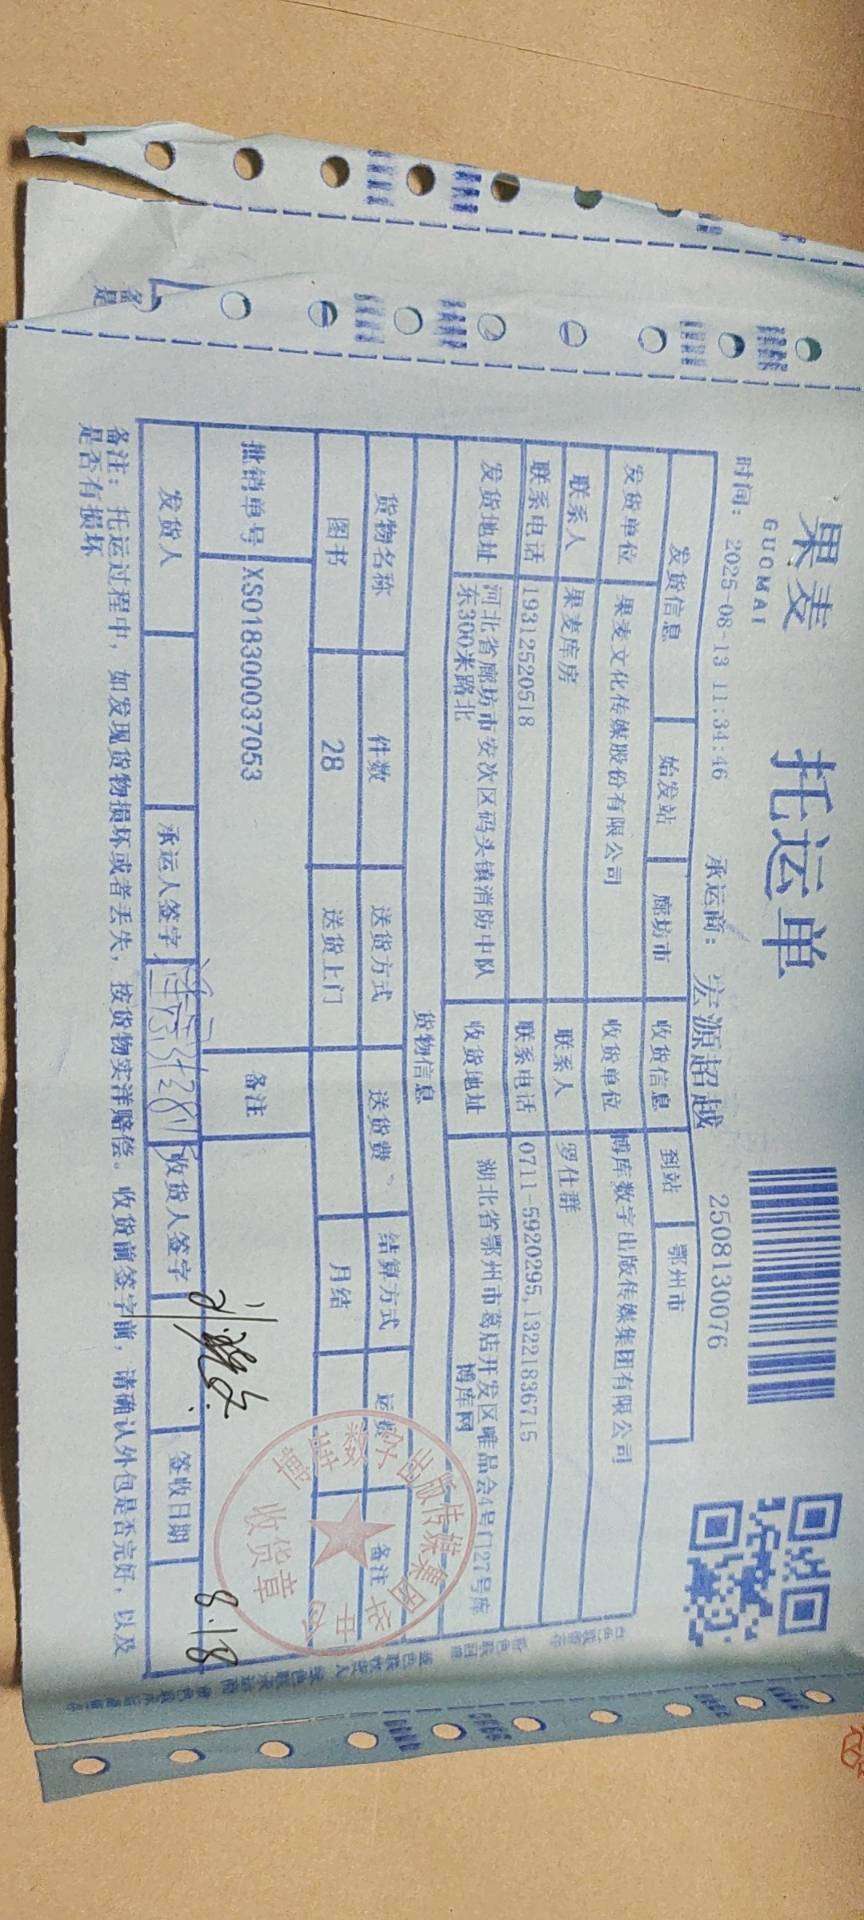 果麦
GUOMAI
托运单
时间: 2025-08-13 11:34:46
承运商: 宏源超越
2508130076
发货信息 始发站 廊坊市 收货信息 到站 鄂州市
发货单位 果麦文化传媒股份有限公司 收货单位 博库数字出版传媒集团有限公司
联系人 果麦库房 联系人 罗仕群
联系电话 19312520518 联系电话 0711-5920295,13221836715
发货地址 河北省廊坊市安次区码头镇消防中队
东300米路北
收货地址 湖北省鄂州市葛店开发区唯品会4号门27号库
博库网
货物信息
货物名称 件数 送货方式 送货费 结算方式 运费 备注
图书 28 送货上门 月结
批销单号 XS018300037053 备注
发货人 承运人签字 收货人签字 签收日期 8.18
备注: 托运过程中, 如发现货物损坏或者丢失, 按货物实洋赔偿。收货前签字前, 请确认外包是否完好, 以及
是否有损坏
收货章